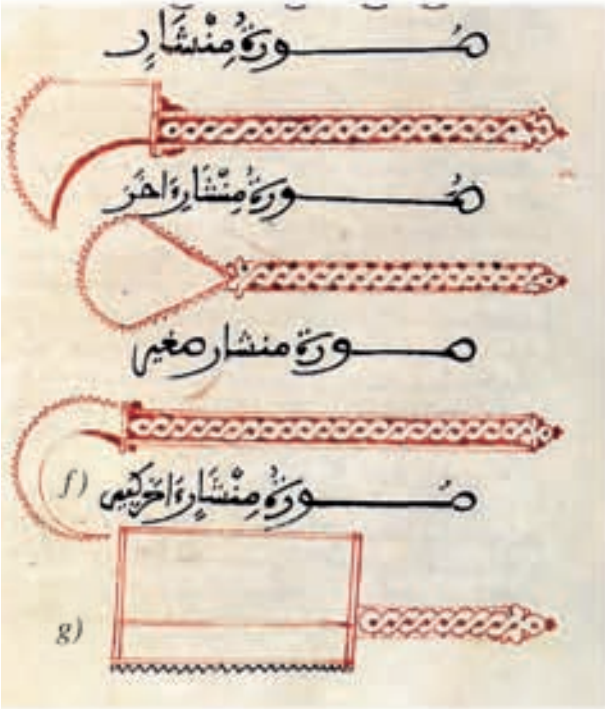 صُورَةُ مِنْشَارٍ
صُورَةُ مِنْشَارٍ اخَرَ
صُورَة منشار صغير
f)
صُورَةُ مِنْشَارٍ اخَر كبير
g)